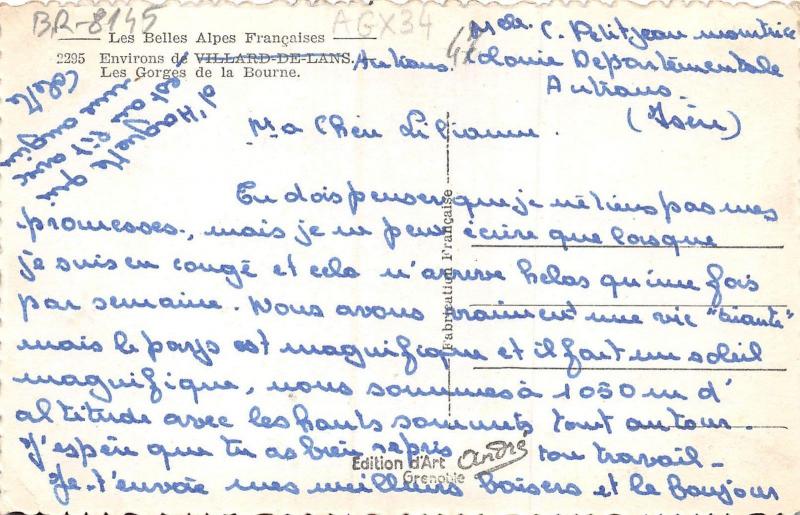 BR-8145
AGX34
Les Belles Alpes Françaises
2295 Environs de VILLARD-DE-LANS.
Les Gorges de la Bourne.
Autrans.
Melle C. Petitjean monitrice
Colonie Departementale
Autrans
(Isère)
Ma Chère Lilianne.
Tu dois penser que je ne tiens pas mes
promesses, mais je ne peux écrire que lorsque
je suis en congé et cela n'arrive helas qu'une fois
par semaine. Nous avons vraiment une vie
mais le pays est magnifique et il fait un soleil
magnifique, nous sommes à 1050 m d'
altitude avec les hauts sommets tout autour.
J'espère que tu as bien repris ton travail.
Je t'envoie mes meilleurs baisers et le bonjour
d'Huguette qui
est avec
Colette
Fabrication Française
Edition d'Art André
Grenoble